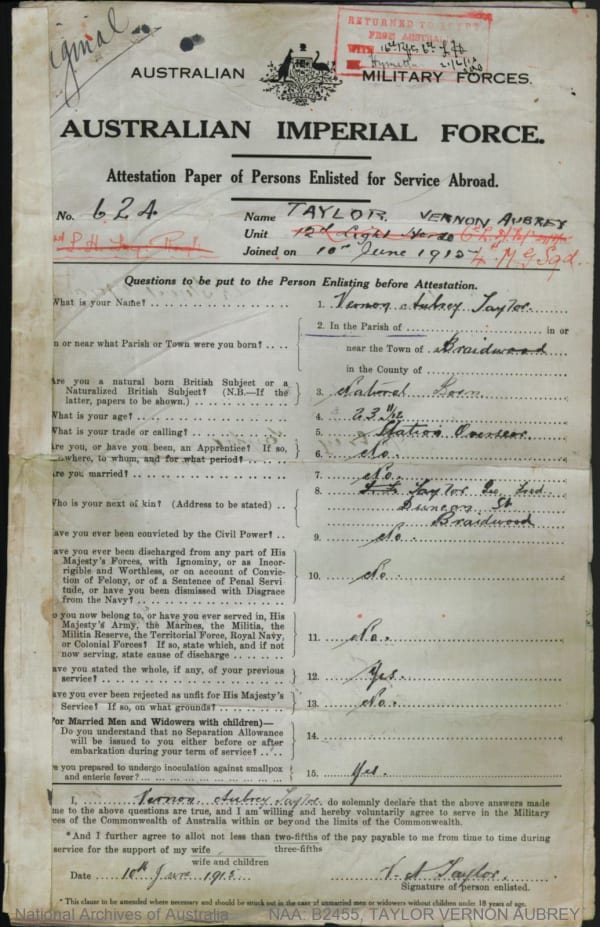 Original
RETURNED TO EGYPT
FROM AUSTRALIA
WITH
AUSTRALIAN MILITARY FORCES.
AUSTRALIAN IMPERIAL FORCE.
Attestation Paper of Persons Enlisted for Service Abroad.
No. 624 Name TAYLOR VERNON AUBREY
Unit 12th Light Horse
Joined on 10th June 1915 4th M G Sqd.
Questions to be put to the Person Enlisting before Attestation.
What is your Name? 1. Vernon Aubrey Taylor
2. In the Parish of in or
n or near what Parish or Town were you born? near the Town of Braidwood
in the County of
Are you a natural born British Subject or a
Naturalized British Subject? (N.B.—If the 3. Natural Born
latter, papers to be shown.)
What is your age? 4. 23 11/12
What is your trade or calling? 5. Station Overseer
Are you, or have you been, an Apprentice? If so, 6. No.
where, to whom, and for what period?
Are you married? 7. No.
8. Taylor Fred
Who is your next of kin? (Address to be stated) Duncan St
Braidwood
Have you ever been convicted by the Civil Power? 9. No.
ave you ever been discharged from any part of His
Majesty's Forces, with Ignominy, or as Incor-
rigible and Worthless, or on account of Convic-
tion of Felony, or of a Sentence of Penal Servi- 10. No.
tude, or have you been Dismissed with Disgrace
from the Navy?
o you now belong to, or have you ever served in, His
Majesty's Army, the Marines, the Militia, the
Militia Reserve, the Territorial Force, Royal Navy,
or Colonial Forces? If so, state which, and if not 11. No.
now serving, state cause of discharge
ave you stated the whole, if any, of your previous 12. Yes.
service?
ave you ever been rejected as unfit for His Majesty's 13. No.
Service? If so, on what grounds?
For Married Men and Widowers with children)—
Do you understand that no Separation Allowance 14.
will be issued to you either before or after
embarkation during your term of service?
re you prepared to undergo inoculation against smallpox
and enteric fever? 15. Yes.
I, Vernon Aubrey Taylor do solemnly declare that the above answers made
me to the above questions are true, and I am willing and hereby voluntarily agree to serve in the Military
ces of the Commonwealth of Australia within or beyond the limits of the Commonwealth.
*And I further agree to allot not less than two-fifths of the pay payable to me from time to time during
three-fifths
service for the support of my wife
wife and children
Date 10th June 1915 V. A Taylor.
Signature of person enlisted.
* This clause to be amended where necessary and should be struck out in the case of unmarried men or widowers without children under 18 years of age.
National Archives of Australia NAA: B2455, TAYLOR VERNON AUBREY